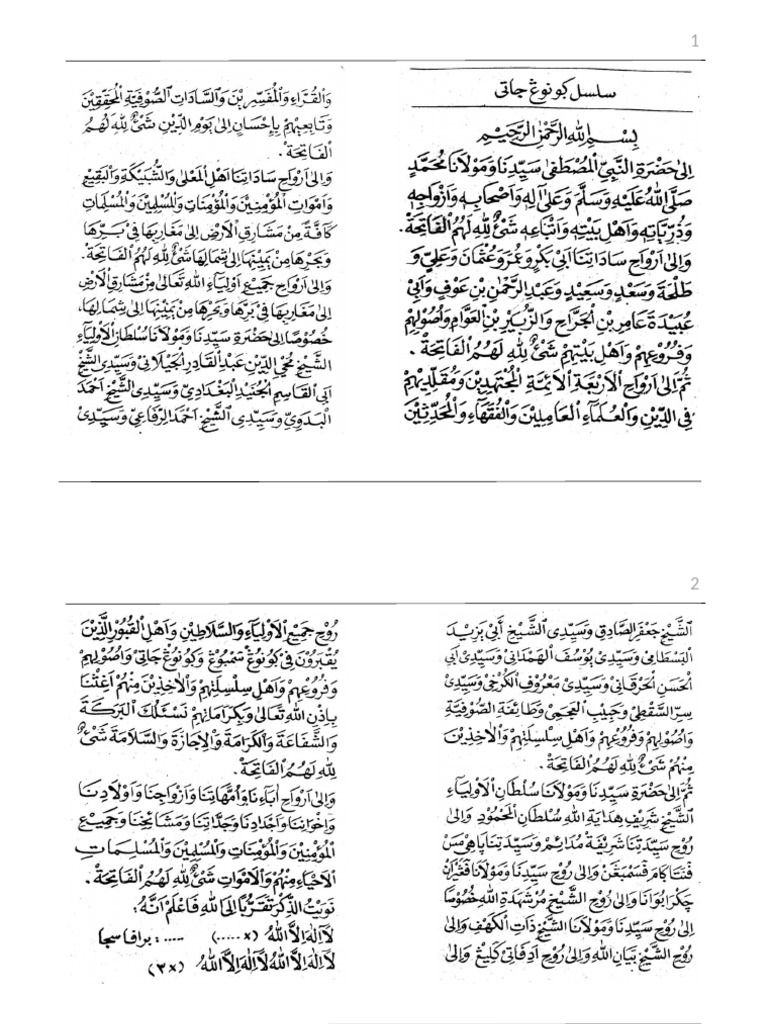 1
سلسل ڮونوڠ جاتى
بِسْمِ اللهِ الرَّحْمٰنِ الرَّحِيْمِ
اِلٰى حَضْرَةِ النَّبِيِّ الْمُصْطَفٰى سَيِّدِنَا وَمَوْلَانَا مُحَمَّدٍ
صَلَّى اللهُ عَلَيْهِ وَسَلَّمَ وَعَلٰى اٰلِهِ وَاَصْحَابِهِ وَاَزْوَاجِهِ
وَذُرِّيَّاتِهِ وَاَهْلِ بَيْتِهِ وَاَتْبَاعِهِ شَيْءٌ لِلّٰهِ لَهُمُ الْفَاتِحَةْ.
وَاِلٰى اَرْوَاحِ سَادَاتِنَا اَبِيْ بَكْرٍ وَعُمَرَ وَعُثْمَانَ وَعَلِيٍّ وَ
طَلْحَةَ وَسَعْدٍ وَسَعِيْدٍ وَعَبْدِ الرَّحْمٰنِ بْنِ عَوْفٍ وَاَبِيْ
عُبَيْدَةَ عَامِرِ بْنِ الْجَرَّاحِ وَالزُّبَيْرِ بْنِ الْعَوَّامِ وَاُصُوْلِهِمْ
وَفُرُوْعِهِمْ وَاَهْلِ بَيْتِهِمْ شَيْءٌ لِلّٰهِ لَهُمُ الْفَاتِحَةْ.
ثُمَّ اِلٰى اَرْوَاحِ الْاَرْبَعَةِ الْاَئِمَّةِ الْمُجْتَهِدِيْنَ وَمُقَلِّدِيْهِمْ
فِي الدِّيْنِ وَالْعُلَمَآءِ الْعَامِلِيْنَ وَالْفُقَهَآءِ وَالْمُحَدِّثِيْنَ
وَالْقُرَّاءِ وَالْمُفَسِّرِيْنَ وَالسَّادَاتِ الصُّوْفِيَّةِ الْمُحَقِّقِيْنَ
وَتَابِعِيْهِمْ بِاِحْسَانٍ اِلٰى يَوْمِ الدِّيْنِ شَيْءٌ لِلّٰهِ لَهُمُ
الْفَاتِحَةْ.
وَاِلٰى اَرْوَاحِ سَادَاتِنَا اَهْلِ الْمَعْلٰى وَالشُّبَيْكَةِ وَالْبَقِيْعِ
وَاَمْوَاتِ الْمُؤْمِنِيْنَ وَالْمُؤْمِنَاتِ وَالْمُسْلِمِيْنَ وَالْمُسْلِمَاتِ
كَافَّةً مِنْ مَشَارِقِ الْاَرْضِ اِلٰى مَغَارِبِهَا فِيْ بَرِّهَا
وَبَحْرِهَا مِنْ يَمِيْنِهَا اِلٰى شِمَالِهَا شَيْءٌ لِلّٰهِ لَهُمُ الْفَاتِحَةْ.
وَاِلٰى اَرْوَاحِ جَمِيْعِ اَوْلِيَآءِ اللهِ تَعَالٰى مِنْ مَشَارِقِ الْاَرْضِ
اِلٰى مَغَارِبِهَا فِيْ بَرِّهَا وَبَحْرِهَا مِنْ يَمِيْنِهَا اِلٰى شِمَالِهَا،
خُصُوْصًا اِلٰى حَضْرَةِ سَيِّدِنَا وَمَوْلَانَا سُلْطَانِ الْاَوْلِيَآءِ
الشَّيْخِ مُحْيِ الدِّيْنِ عَبْدِ الْقَادِرِ الْجَيْلَانِيْ وَسَيِّدِى الشَّيْخِ
اَبِى الْقَاسِمِ الْجُنَيْدِ الْبَغْدَادِيْ وَسَيِّدِى الشَّيْخِ اَحْمَدَ
الْبَدَوِيِّ وَسَيِّدِى الشَّيْخِ اَحْمَدَ الرِّفَاعِيْ وَسَيِّدِىْ
2
الشَّيْخِ جَعْفَرِ الصَّادِقِ وَسَيِّدِى الشَّيْخِ اَبِيْ يَزِيْدَ
الْبَسْطَامِيْ وَسَيِّدِىْ يُوْسُفَ الْهَمْدَانِيْ وَسَيِّدِىْ اَبِى
الْحَسَنِ الْخَرْقَانِيْ وَسَيِّدِىْ مَعْرُوْفِ الْكَرْخِيْ وَسَيِّدِىْ
سِرِّ السَّقْطِيْ وَحَبِيْبِ الْعَجَمِيْ وَطَائِفَةِ الصُّوْفِيَّةِ
وَاُصُوْلِهِمْ وَفُرُوْعِهِمْ وَاَهْلِ سِلْسِلَتِهِمْ وَالْاٰخِذِيْنَ
مِنْهُمْ شَيْءٌ لِلّٰهِ لَهُمُ الْفَاتِحَةْ.
ثُمَّ اِلٰى حَضْرَةِ سَيِّدِنَا وَمَوْلَانَا سُلْطَانِ الْاَوْلِيَآءِ
الشَّيْخِ شَرِيْفْ هِدَايَةِ اللهِ سُلْطَانِ الْمَحْمُوْدِ وَاِلٰى
رُوْحِ سَيِّدَتِنَا شَرِيْفَةْ مُدَائِمْ وَسَيِّدَتِنَا ڽَاهِيْ مَسْ
فَنَتَا ڮَامَرْ فَسَمْبَڠَنْ وَاِلٰى رُوْحِ سَيِّدِنَا وَمَوْلَانَا فَڠَيْرَانْ
چَكْرَابُوَانَا وَاِلٰى رُوْحِ الشَّيْخِ مُرْشَهَدَةِ اللهِ خُصُوْصًا
اِلٰى رُوْحِ سَيِّدِنَا وَمَوْلَانَا الشَّيْخِ ذَاتِ الْكَهْفِ وَاِلٰى
رُوْحِ الشَّيْخِ بَيَانِ اللهِ وَاِلٰى رُوْحِ اَدِفَاتِيْ ڮَلِيْڠْ وَاِلٰى
رُوْحِ جَمِيْعِ الْاَوْلِيَآءِ وَالسَّلَاطِيْنِ وَاَهْلِ الْقُبُوْرِ الَّذِيْنَ
يُقْبَرُوْنَ فِيْ ڮُوْنُوْڠْ سَمْبُوْڠْ وَڮُوْنُوْڠْ جَاتِيْ وَاُصُوْلِهِمْ
وَفُرُوْعِهِمْ وَاَهْلِ سِلْسِلَتِهِمْ وَالْاٰخِذِيْنَ مِنْهُمْ اَغِثْنَا
بِاِذْنِ اللهِ تَعَالٰى وَبِكَرَامَاتِهِمْ نَسْئَلُكَ الْبَرَكَةَ
وَالشَّفَاعَةَ وَالْكَرَامَةَ وَالْاِجَازَةَ وَالسَّلَامَةَ شَيْءٌ
لِلّٰهِ لَهُمُ الْفَاتِحَةْ.
وَاِلٰى اَرْوَاحِ اٰبَاءِنَا وَاُمَّهَاتِنَا وَاَزْوَاجِنَا وَاَوْلَادِنَا
وَاِخْوَانِنَا وَاَجْدَادِنَا وَجَدَّاتِنَا وَمَشَائِخِنَا وَجَمِيْعِ
الْمُؤْمِنِيْنَ وَالْمُؤْمِنَاتِ وَالْمُسْلِمِيْنَ وَالْمُسْلِمَاتِ
الْاَحْيَاءِ مِنْهُمْ وَالْاَمْوَاتِ شَيْءٌ لِلّٰهِ لَهُمُ الْفَاتِحَةْ.
نَوَيْتُ الذِّكْرَ تَقَرُّبًا اِلَى اللهِ فَاعْلَمْ اَنَّهُ:
لَآ اِلٰهَ اِلَّا اللهُ (×.....) ..... : براڤا سجا
لَآ اِلٰهَ اِلَّا اللهُ لَآ اِلٰهَ اِلَّا اللهُ لَآ اِلٰهَ اِلَّا اللهُ (٣×)